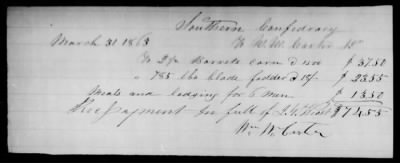 Southern Confedracy
March 31 1863 To W. W. Carter Dr
To 2 1/2 Barrels corn @ $ 37.50
" 785 lbs blade fodder @ $ 23.55
Meals and lodging for 6 men $ 13.50
Rec payment in full of $ 74.55
Wm W. Carter